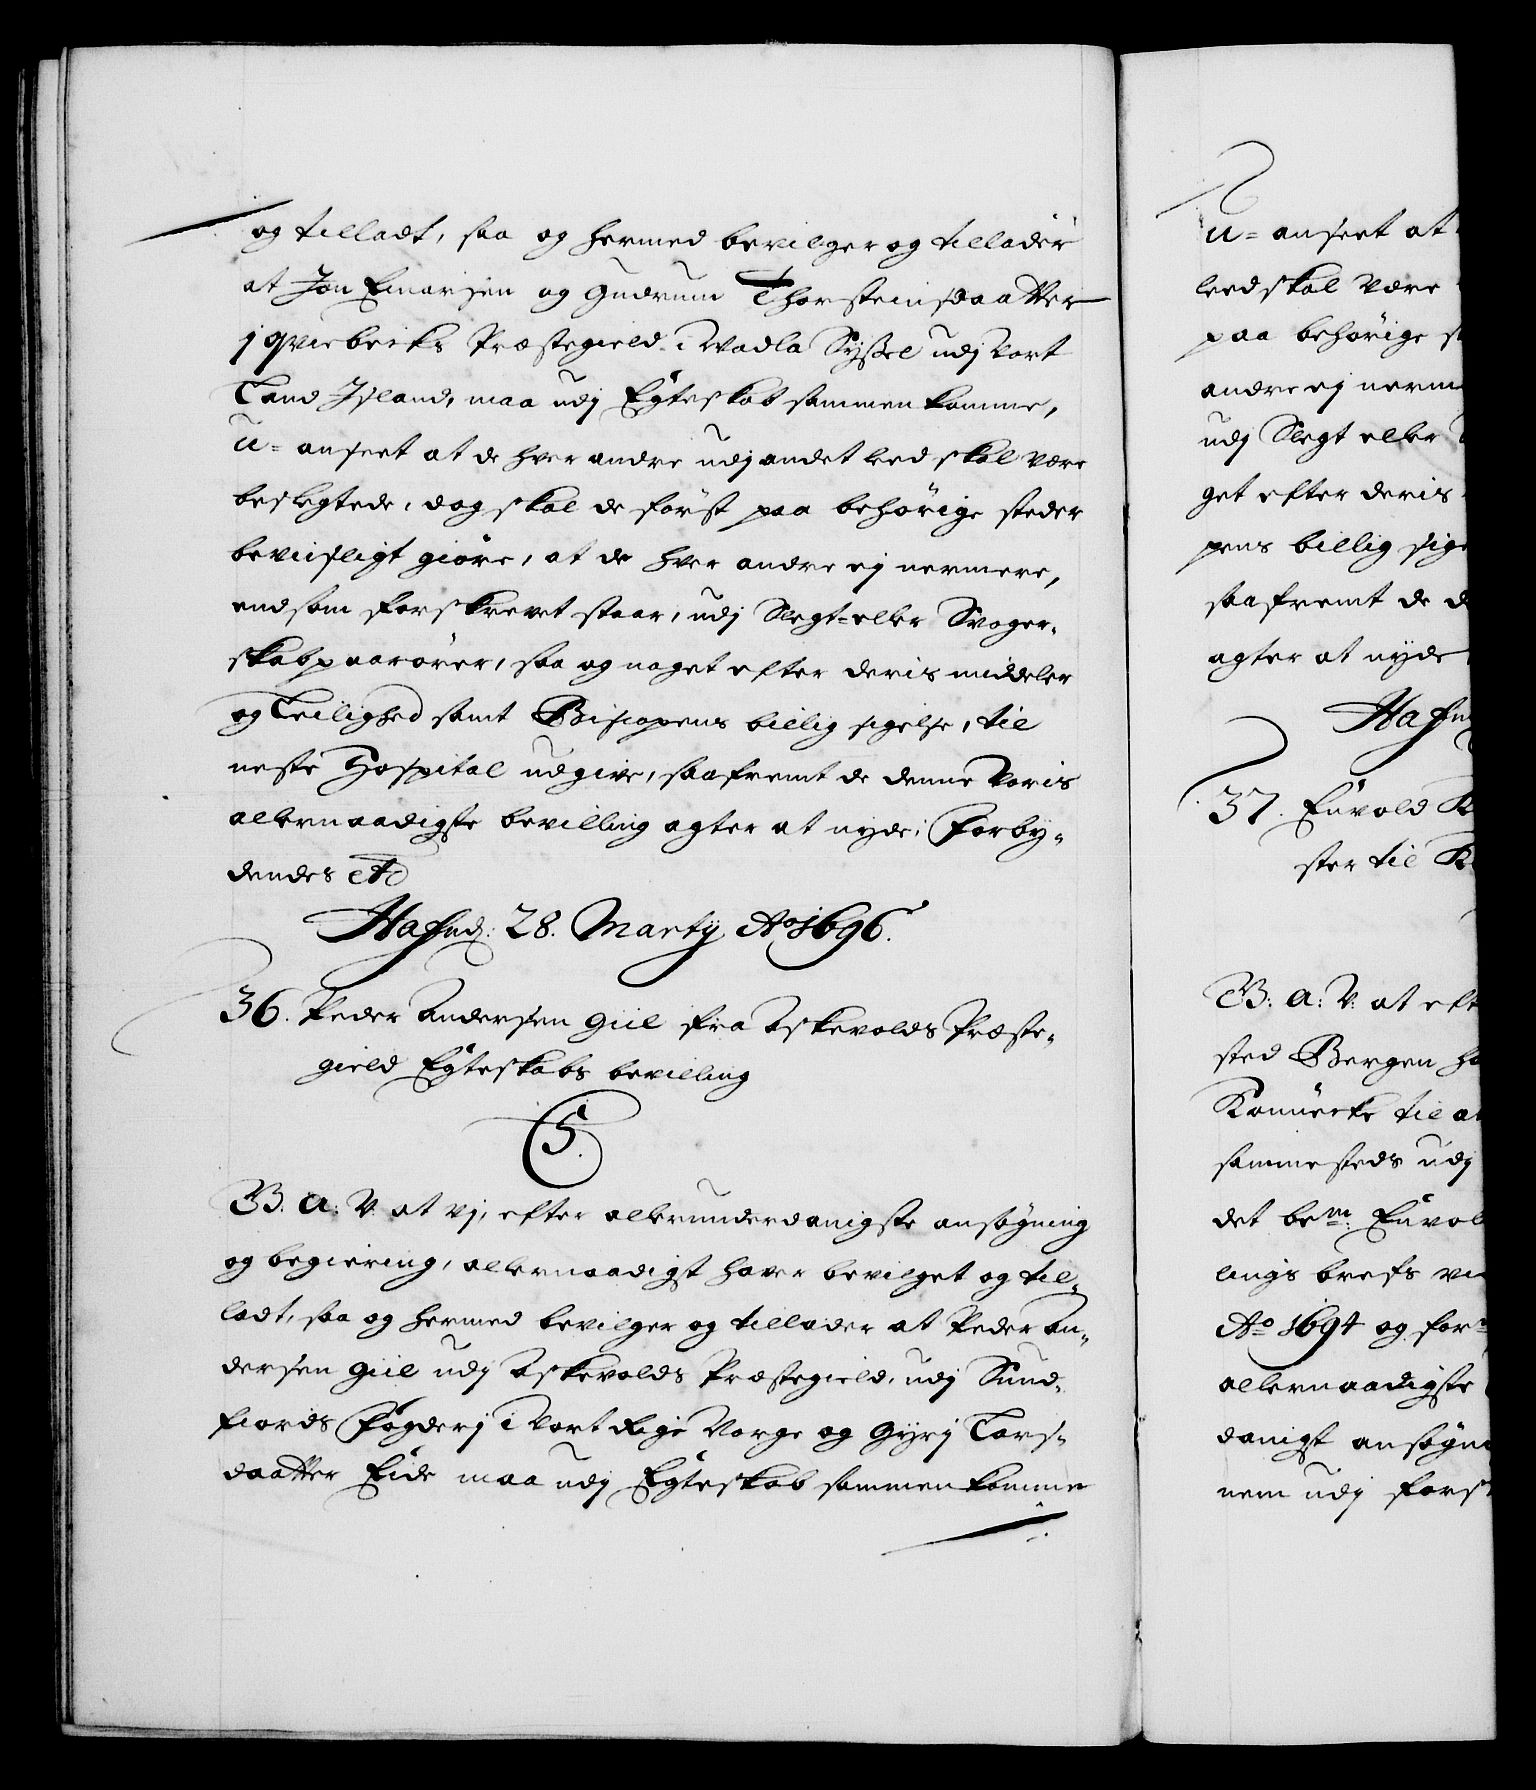 og tilladt, saa og hermed bevilger og tillader
at Jon Einarsen og Gudrun Thorsteinsdaatter
j Qviebecks Præstegield i Wadla Syssel udj Vort
Land Jsland, maa udj Egteskab sammen komme,
u=anseet at de hver andre udj andet leed skal være
beslegtede, dog skal de först paa behörige steder
beviisligt giöre, at de hver andre ej nermere,
end som forskrevet staar, udj Slegt= eller Svoger-
skab paarörer, saa og noget efter deris middeler
og Leilighed samt Biscopens billig sigelse, til
neste Hospital udgive, saafremt de denne Voris
allernaadigste bevilling agter at nyde; Forby-
dendes etc
Hafnd: 28. Marty Ao 1696.
36. Peder Andersen Giil fra Askevolds Præste-
gield Egteskabs bevilling
S.
G. A: V. at vj, efter allerunderdanigste ansögning
og begiering, allernaadigst haver bevilget og til-
ladt, saa og hermed bevilger og tillader at Peder An-
dersen Giil udj Askevolds Præstegield, udj Sund-
fiords Fogderj i Vort Rige Norge og Gyrj Lars-
daatter Eide maa udj Egteskab sammen komme
u=anseet at
leed skal være
paa behörige
andre ej nerm
udj Slegt eller
get efter deris
pens billig sige
saafremt de d
agter at nyde
Hafn
37. Envold K
ster til K
G: A: V: at eft
sted Bergen ha
til at
sammesteds udj
det bem: Envol
lings brefs vi
Ao 1694 og for
allernaadigste
danigst ansögn
nem udj forst